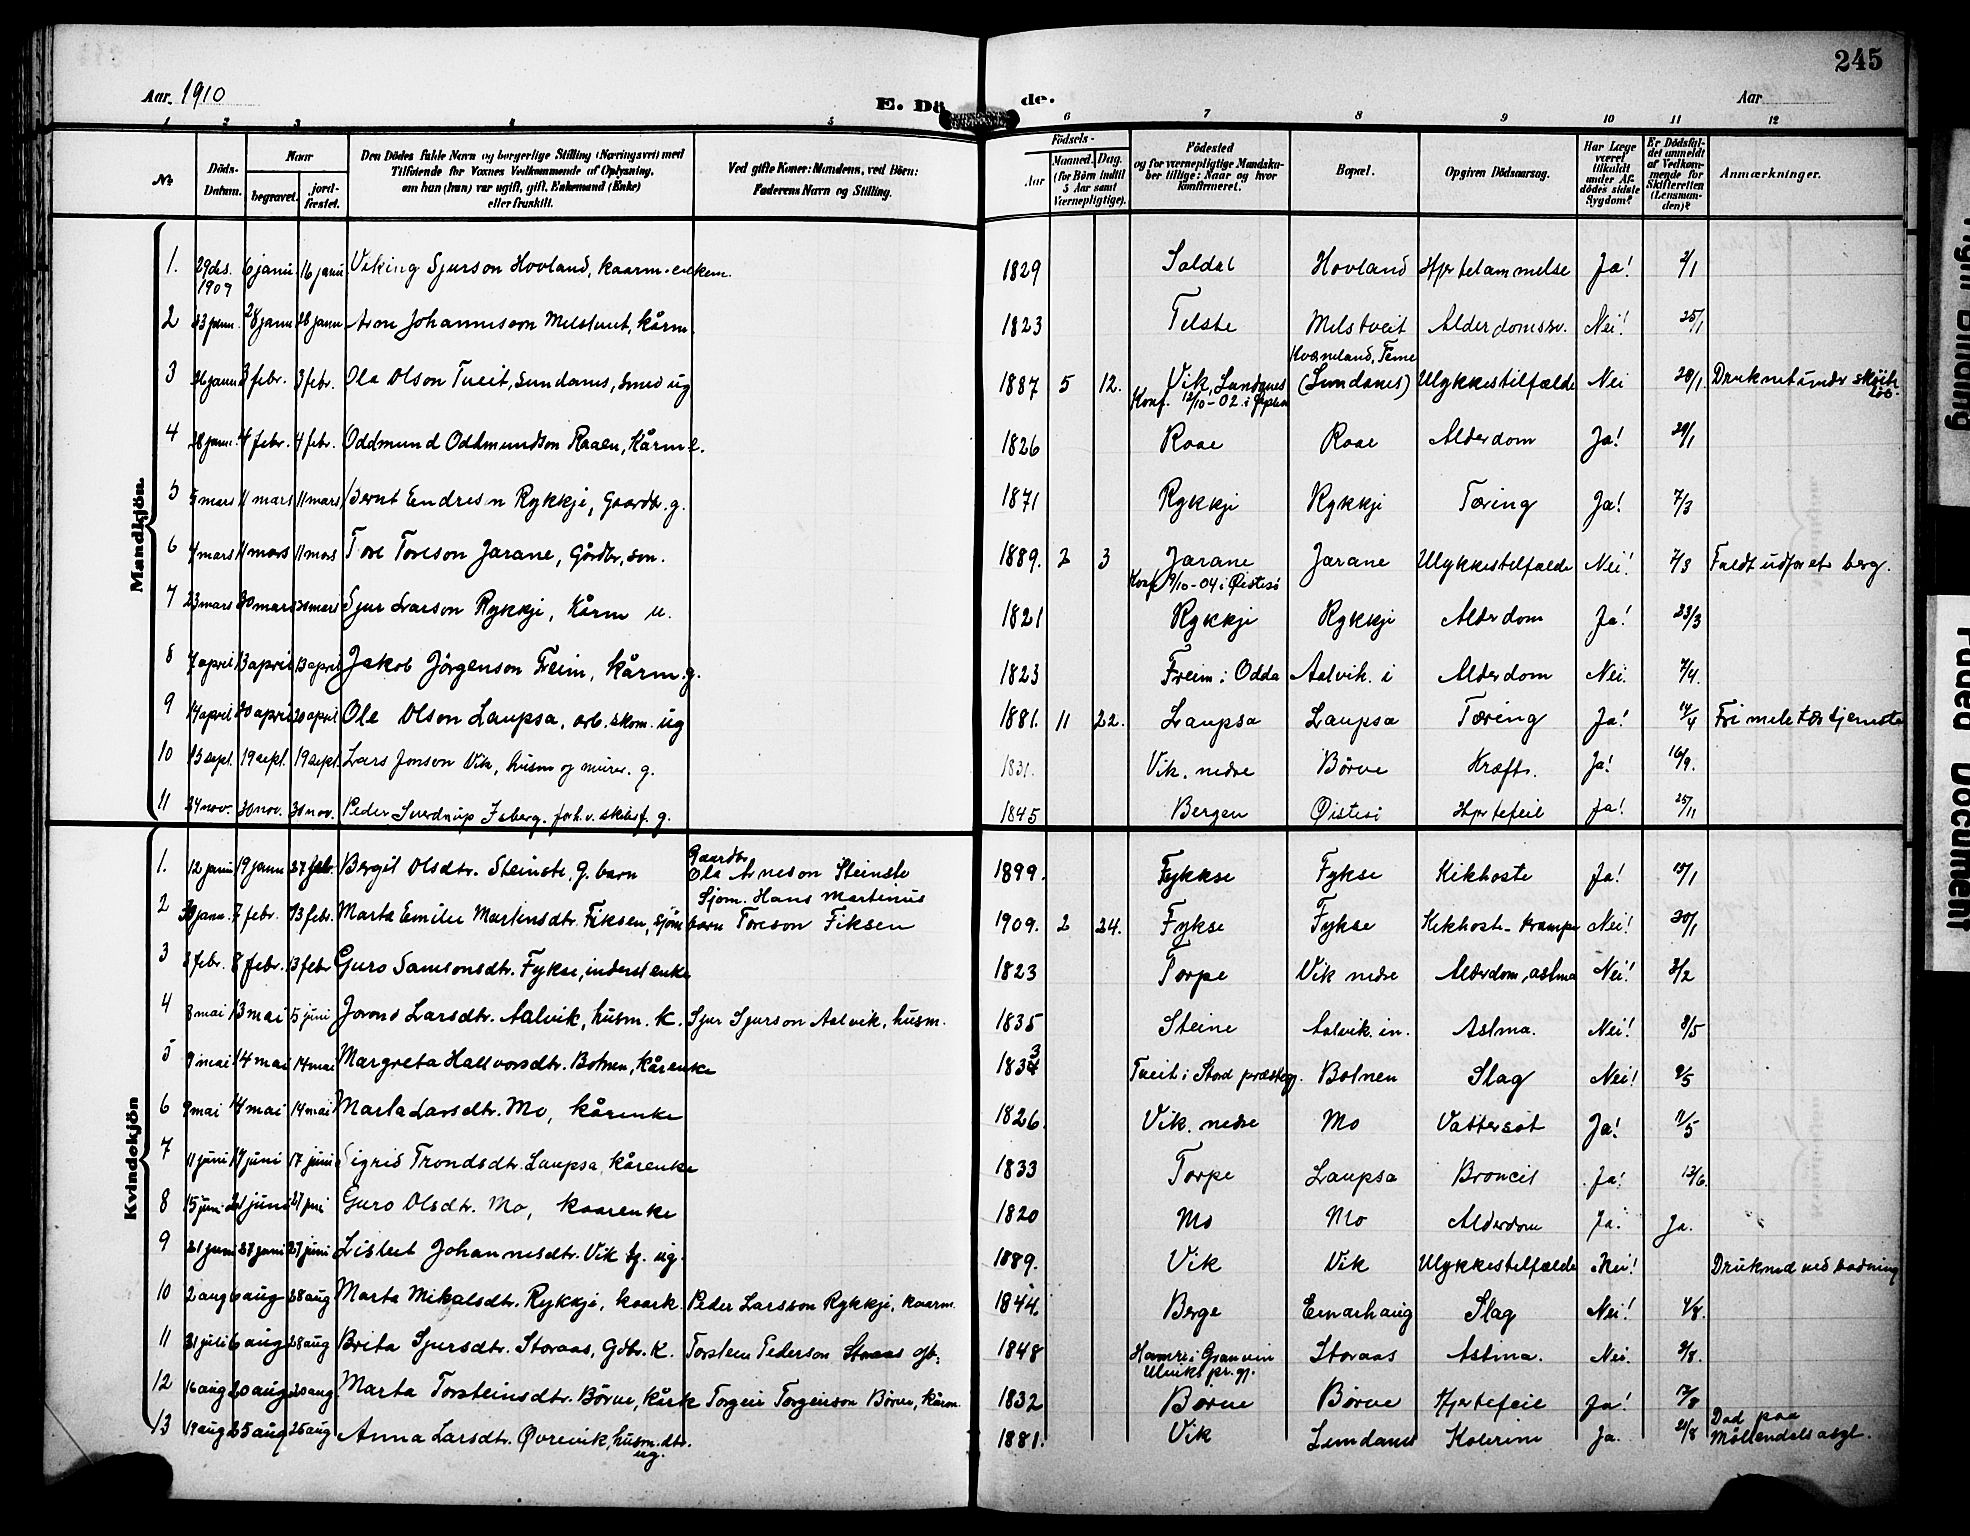 245
Aar 1910
E. Dö de.
Aar
1 2 3 4 5 6 7 8 9 10 11 12
No
Döds-Datum.
Naar
begravet.
jord-fæstet.
Den Dödes fulde Navn og borgerlige Stilling (Næringsvei) med
Tilföiende for Voxnes Vedkommende af Oplysning,
om han (hun) var ugift, gift, Enkemand (Enke)
eller fraskilt.
Ved gifte Koner: Mandens, ved Börn:
Faderens Navn og Stilling.
Födsels-
Aar
Maaned. Dag.
(for Börn indtil 5 Aar samt Værnepligtige).
Födested
og for værnepligtige Mandskaber tillige: Naar og hvor konfirmeret.
Bopæl.
Opgiven Dödsaarsag.
Har Læge været tilkaldt under Afdödes sidste Sygdom?
Er Dödsfaldet anmeldt af Vedkommende for Skifteretten (Lensmanden)?
Anmærkninger.
Mandkjön.
1. 29 des. 1909 6 janu 16 janu Viking Sjurson Hovland, kaarm. enkem. 1829 Soldal Hovland Hjertelammelse Ja! 2/1
2 23 janu. 28 janu 28 janu Arne Johannesson Melstveit, kårm. 1823 Telste Melstveit Alderdomssv. Nei! 25/1
3 26 janu 3 febr. 3 febr. Ola Olson Tveit, Sundanes, smed ug 1887 5 12. Vik, Sundanes Konf. 12/10-02 i (Sundanes) Ulykkestilfælde Nei 28/1 Druknet under skøiteløb.
4 28 janu. 4 febr. 4 febr. Oddmund Oddmundson Raaen, Kårm. e. 1826 Raae Raae Alderdom Ja! 29/1
5 5 mars 11 mars 11 mars Bernt Endresn Rykkje, Gaardbr. g. 1871 Rykkji Rykkji Tæring Ja! 7/3
6 4 mars 11 mars 11 mars Tore Toreson Jarane, Gårdbr. søn. 1889. 2 3 Jarane Konf. 9/10-04 i Øistesø Jarane Ulykkestilfælde Nei! 7/3 Faldt udfor et berg.
7 23 mars 30 mars 30 mars Sjur Larson Rykkje, Kårm 1821 Rykkji Rykkji Alderdom Ja! 23/3
8 7 april 13 april 13 april Jakob Jörgenson Freim, Kårm. g. 1823 Freim i Odda Aalvik. i Alderdom Nei. 7/4.
9 14 april 20 april 20 april Ole Olson Laupsa, arb. skom. ug 1881. 11 22. Laupsa Laupsa Tæring Ja! 14/4 Fri militærtjeneste
10 15 sept. 19 sept. 19 sept. Lars Jonson Vik, husm og murer. g. 1831. Vik. nedre Børve Kræft. Ja! 16/9.
11 24 nov. 30 nov. 30 nov. Peder Sverdrup Isberg. forh.v. skibsf. g. 1845 Bergen Øistesø Hjertefeil Ja! 25/11
Kvindekjön
1. 12 janu 19 janu 27 febr. Bergit Olsdtr. Steinstø, g. barn Gaardbr Ola Arneson Steinstø 1899. Fykse Fykse Kikhoste Ja! 15/1
2 30 janu. 7 febr. 13 febr. Marta Emilie Martinsdtr. Fiksen, sjøm barn Sjøm. Hans Martinus Toreson Fiksen 1909. 2 24. Fykse Fykse Kikhoste-krampe Nei! 30/1
3 3 febr. 8 febr. 13 febr Guro Samsonsdtr. Fykse, inderst enke 1823 Torpe Vik nedre Alderdom, astma Nei! 3/2
4 8 mai 13 mai 5 juni Jorond Larsdtr. Aalvik, husm. K. Sjur Sjurson Aalvik, husm. 1835 Steine Aalvik. in. Astma. Nei! 8/5
5 9 mai 14 mai 14 mai Margreta Hallvorsdtr. Botnen, Kårenke 1833 Tveit i Stord præstegj. Botnen Slag Nei! 9/5
6 9 mai 14 mai 14 mai Marta Larsdtr. Mo, kårenke 1826. Vik. nedre Mo Vattersot Ja! 11/5
7 11 juni 17 juni 17 juni Sigrid Trondsdtr. Laupsa, kårenke 1833 Torpe Laupsa Broncit Ja! 13/6.
8 15 juni 21 juni 27 juni Guro Olsdtr. Mo, kaarenke 1820 Mo Mo Alderdom Ja. Ja.
9 21 juni 27 juni 27 juni Lisbet Johannesdtr. Vik tj. ug. 1889. Vik Vik Ulykkestilfælde Nei! Druknad ved badning
10 2 aug 6 aug 28 aug Marta Mikalsdtr. Rykkje, kaark. Peder Larsson Rykkje, kaarm. 1844. Berge Einarhaug Slag Nei! 4/8.
11 31 juli 6 aug 28 aug Brita Sjursdtr. Storaas, Gdbr. K. Torstein Pederson Storaas gb. 1848 Hamre i Granvin Ulvik pr.gj. Storaas Astma. Nei.
12 16 aug 20 aug 20 aug Marta Torsteinsdtr. Børve, kårk Torgeir Torgeirson Børve, Kårm. 1832 Børve Børve Hjertefeil Ja!
13 19 aug 25 aug 25 aug Anna Larsdtr. Øvrevik, husm. dtr. ug. 1881. Vik Sundanes Ja. Død paa Møllendals asyl.